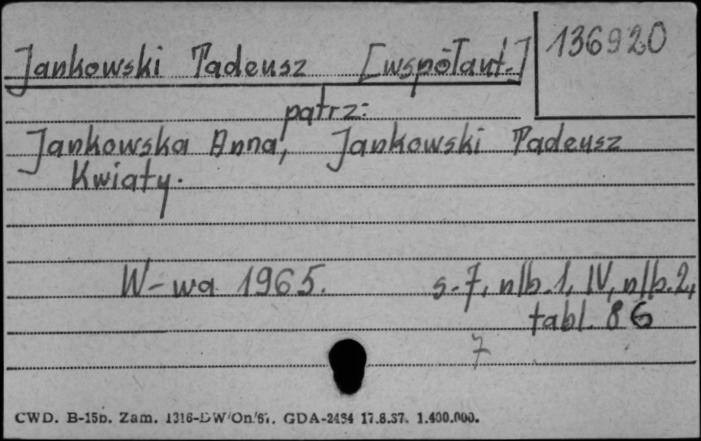 136920
Jankowski Tadeusz [współaut.]
patrz:
Jankowska Anna, Jankowski Tadeusz
Kwiaty.
W-wa 1965. s. 7, nlb. 1, IV, nlb. 2,
tabl. 86
7
CWD. B-15b. Zam. 1316-DW/On/6. GDA-2434 17.8.57. 1.400.000.